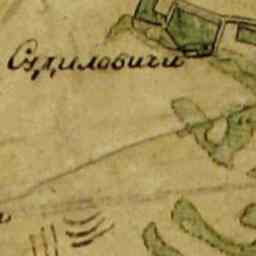 Судиловичи